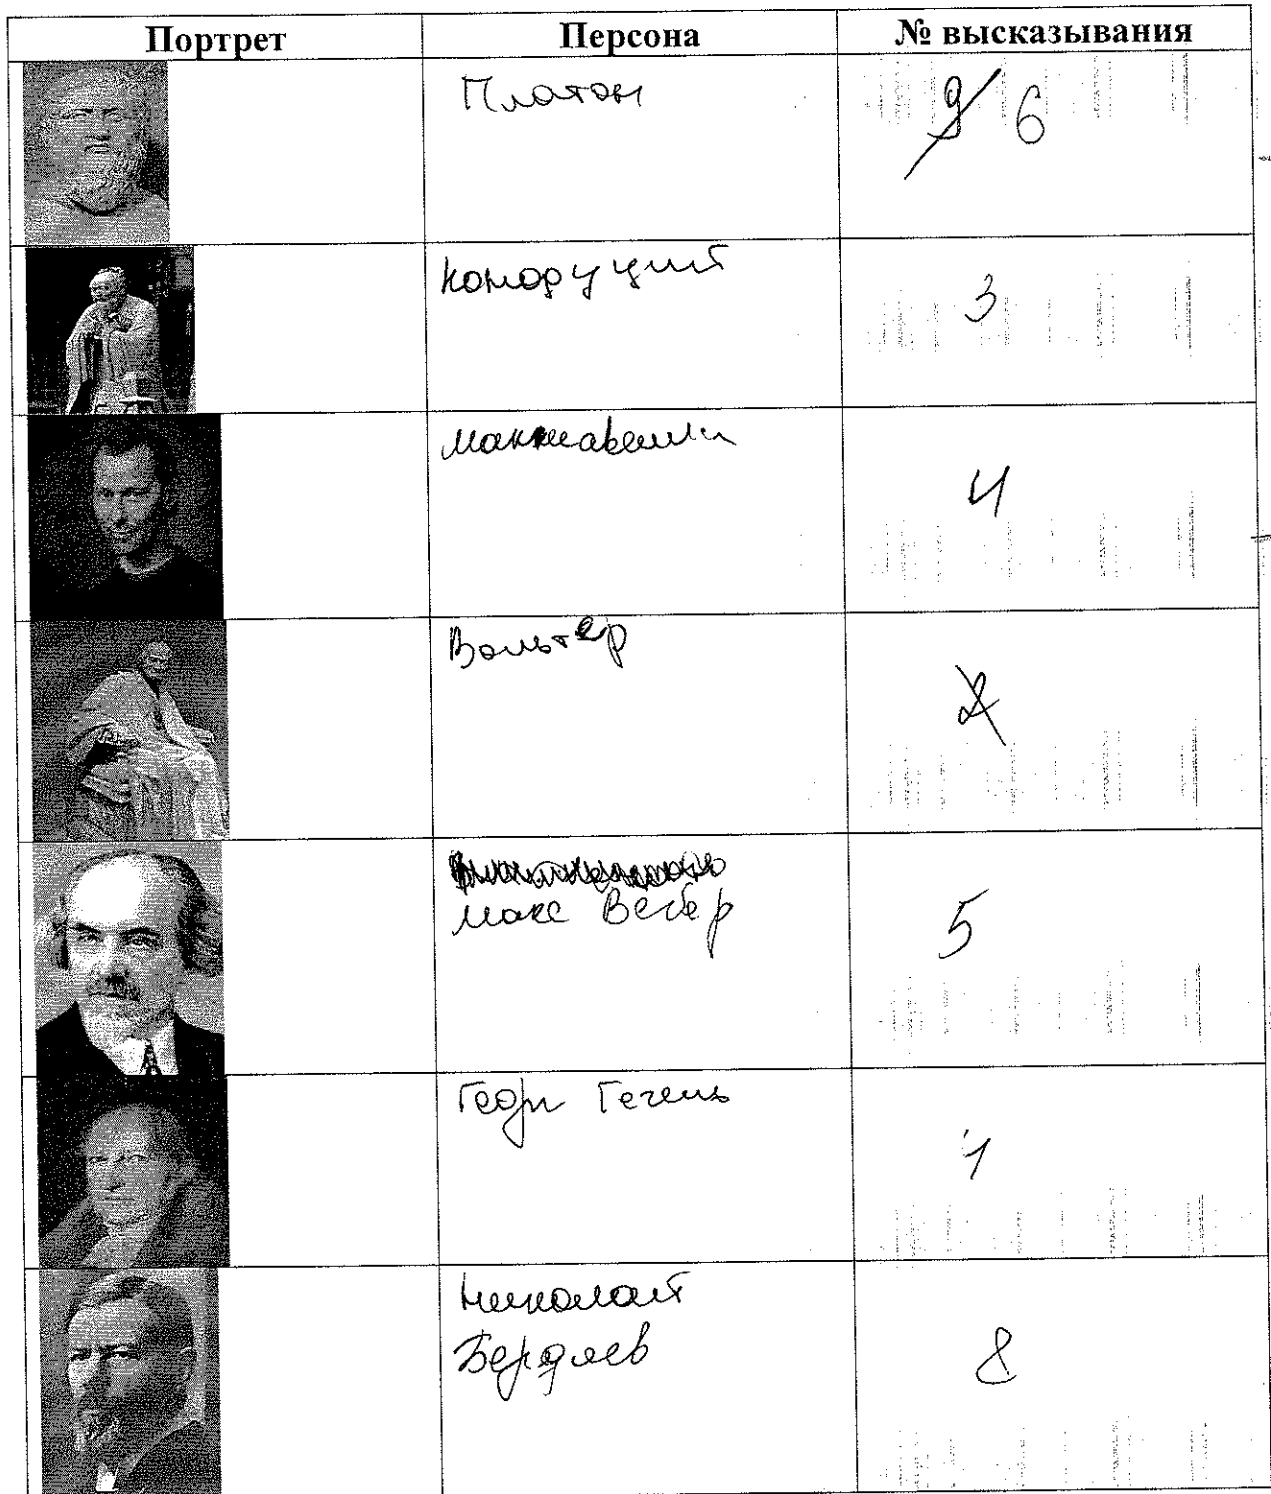 Портрет Персона № высказывания
Платон 6
Конфуций 3
Макиавелли 4
Вольтер
Макс Вебер 5
Георг Гегель 1
Николай
Бердяев 8